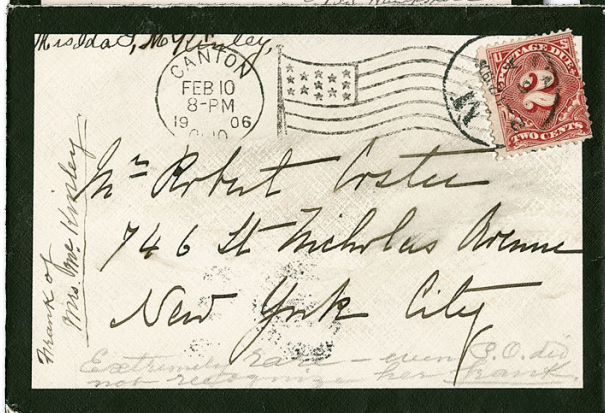 Mrs Ida S, McKinley,
CANTON
FEB 10
8-PM
1906
OHIO
U S
POSTAGE DUE
2
TWO CENTS
Mr Robert Coster
746 St Nicholas Avenue
New York City
Frank of
Mrs. McKinley
Extremely rare - even P.O. did
not recognize her frank.